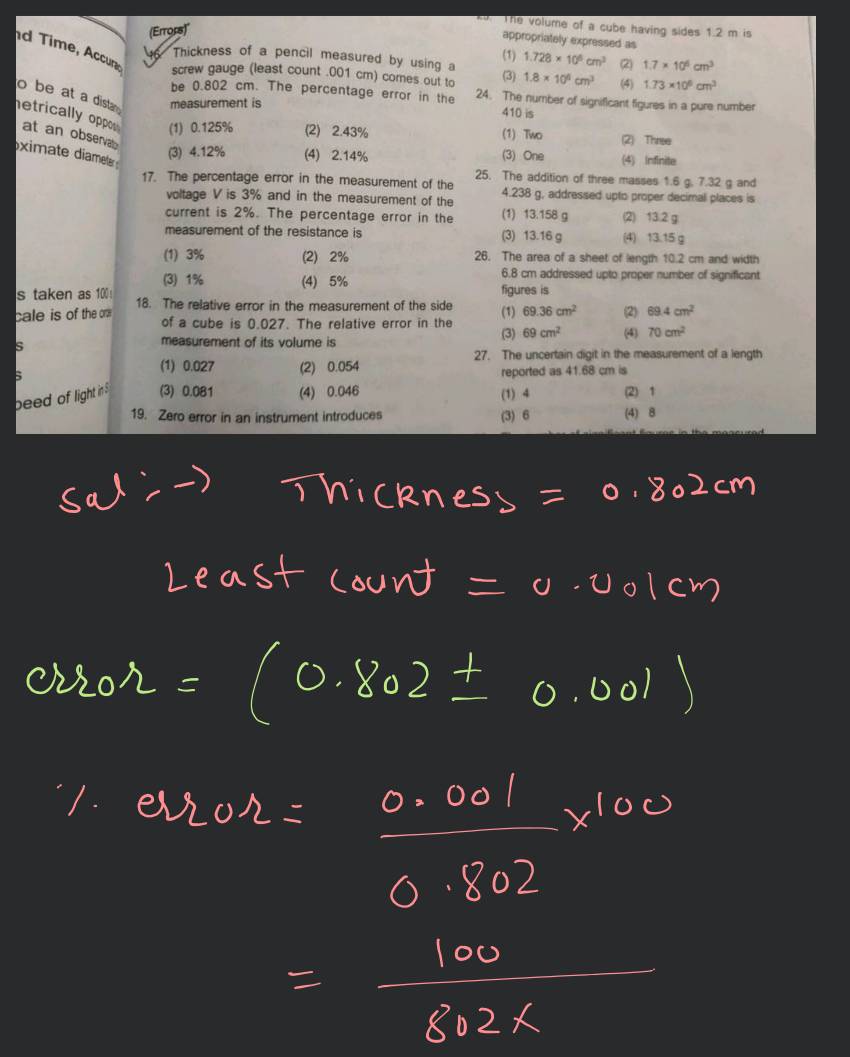 nd Time, Accuracy
o be at a distan
netrically oppos
at an observat
oximate diameter
s taken as 100 s
cale is of the order
s
s
peed of light in S
(Errors)
16. Thickness of a pencil measured by using a
screw gauge (least count .001 cm) comes out to
be 0.802 cm. The percentage error in the
measurement is
(1) 0.125% (2) 2.43%
(3) 4.12% (4) 2.14%
17. The percentage error in the measurement of the
voltage V is 3% and in the measurement of the
current is 2%. The percentage error in the
measurement of the resistance is
(1) 3% (2) 2%
(3) 1% (4) 5%
18. The relative error in the measurement of the side
of a cube is 0.027. The relative error in the
measurement of its volume is
(1) 0.027 (2) 0.054
(3) 0.081 (4) 0.046
19. Zero error in an instrument introduces
The volume of a cube having sides 1.2 m is
appropriately expressed as
(1) 1.728 × 10⁶ cm³ (2) 1.7 × 10⁶ cm³
(3) 1.8 × 10⁶ cm³ (4) 1.73 ×10⁶ cm³
24. The number of significant figures in a pure number
410 is
(1) Two (2) Three
(3) One (4) Infinite
25. The addition of three masses 1.6 g, 7.32 g and
4.238 g, addressed upto proper decimal places is
(1) 13.158 g (2) 13.2 g
(3) 13.16 g (4) 13.15 g
26. The area of a sheet of length 10.2 cm and width
6.8 cm addressed upto proper number of significant
figures is
(1) 69.36 cm² (2) 69.4 cm²
(3) 69 cm² (4) 70 cm²
27. The uncertain digit in the measurement of a length
reported as 41.68 cm is
(1) 4 (2) 1
(3) 6 (4) 8
of significant figures in the measured
Sol :-> Thickness = 0.802cm
Least count = 0.001cm
error = (0.802 ± 0.001)
% error = 0.001 / 0.802 ×100
= 100 / 802×